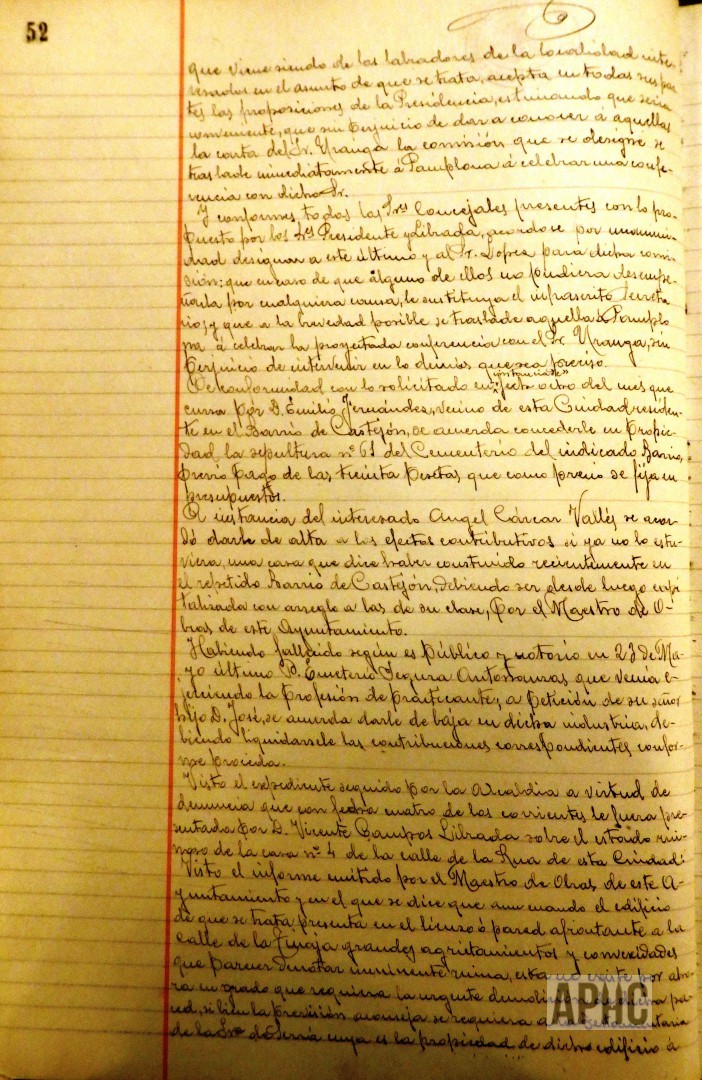 52
que viene siendo de los labradores de la localidad inte-
resados en el asunto de que se trata, acepta en todas sus par-
tes las proposiciones de la Presidencia, estimando que sería
conveniente, que sin perjuicio de dar a conocer a aquellos
la carta del Sr. Uranga la comisión que se designe se
traslade inmediatamente á Pamplona á celebrar una confe-
rencia con dicho Sr.
Y conformes todos los Sres Concejales presentes con lo pro-
puesto por los Sres Presidente y Librada, acordose por unanimi-
dad designar a este último y al Sr. Lopez para dicha comi-
sión; que en caso de que alguno de ellos no pudiera desempe-
ñarla por cualquiera causa, le sustituya el infrascrito Secreta-
rio, y que a la brevedad posible se traslade aquella á Pamplo-
na á celebrar la proyectada conferencia con el Sr. Uranga, sin
perjuicio de intervenir en lo demás que sea preciso.
De conformidad con lo solicitado en instancia fecha ocho del mes que
cursa por D. Emilio Fernández, vecino de esta Ciudad residen-
te en el Barrio de Castejón, se acuerda concederle en propie-
dad la sepultura nº 61 del Cementerio del indicado Barrio,
previo pago de las treinta pesetas que como precio se fija en
presupuestos.
A instancia del interesado Angel Cárcar Vallés se acor-
dó darle de alta a los efectos contributivos si ya no lo estu-
viera, una casa que dice haber construido recientemente en
el repetido Barrio de Castejón, debiendo ser desde luego capi-
talizada con arreglo a las de su clase, por el Maestro de O-
bras de este Ayuntamiento.
Habiendo fallecido según es público y notorio en 23 de Ma-
yo último D. Emeterio Segura que venía e-
jerciendo la profesión de practicante, a petición de su señor
hijo D. José, se acuerda darle de baja en dicha industria, de-
biendo liquidarsele las contribuciones correspondientes confor-
me proceda.
Visto el expediente seguido por la Alcaldia a virtud de
denuncia que con fecha cuatro de los corrientes le fuera pre-
sentada por D. Vicente Campos Librada sobre el estado rui-
noso de la casa nº 4 de la calle de la Rua de esta Ciudad:
Visto el informe emitido por el Maestro de Obras de este A-
yuntamiento y en el que se dice que aun cuando el edificio
de que se trata presenta en el lienzo ó pared afrontante a la
calle de la grandes agrietamientos y convexidades
que parecen denotar inminente ruina, esta no existe por aho-
ra en grado que requiera la urgente demolición de dicha pa-
red, si bien la previsión aconseja se requiera a
de la Sra de Serría cuya es la propiedad de dicho edificio á
APHC